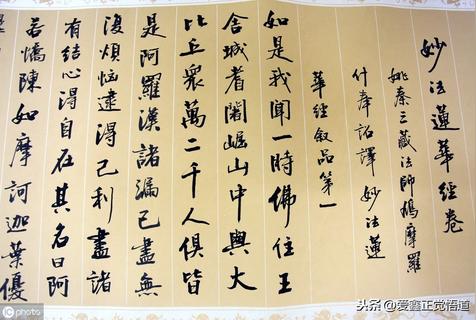 妙法蓮華經卷
姚秦三藏法師鳩摩羅
什奉詔譯妙法蓮
華經叙品第一
如是我聞一時佛住王
舍城耆闍崛山中與大
比丘眾萬二千人俱皆
是阿羅漢諸漏已盡無
復煩惱逮得己利盡諸
有結心得自在其名曰阿
若憍陳如摩訶迦葉優
photo
头条@爱鑫正觉悟道